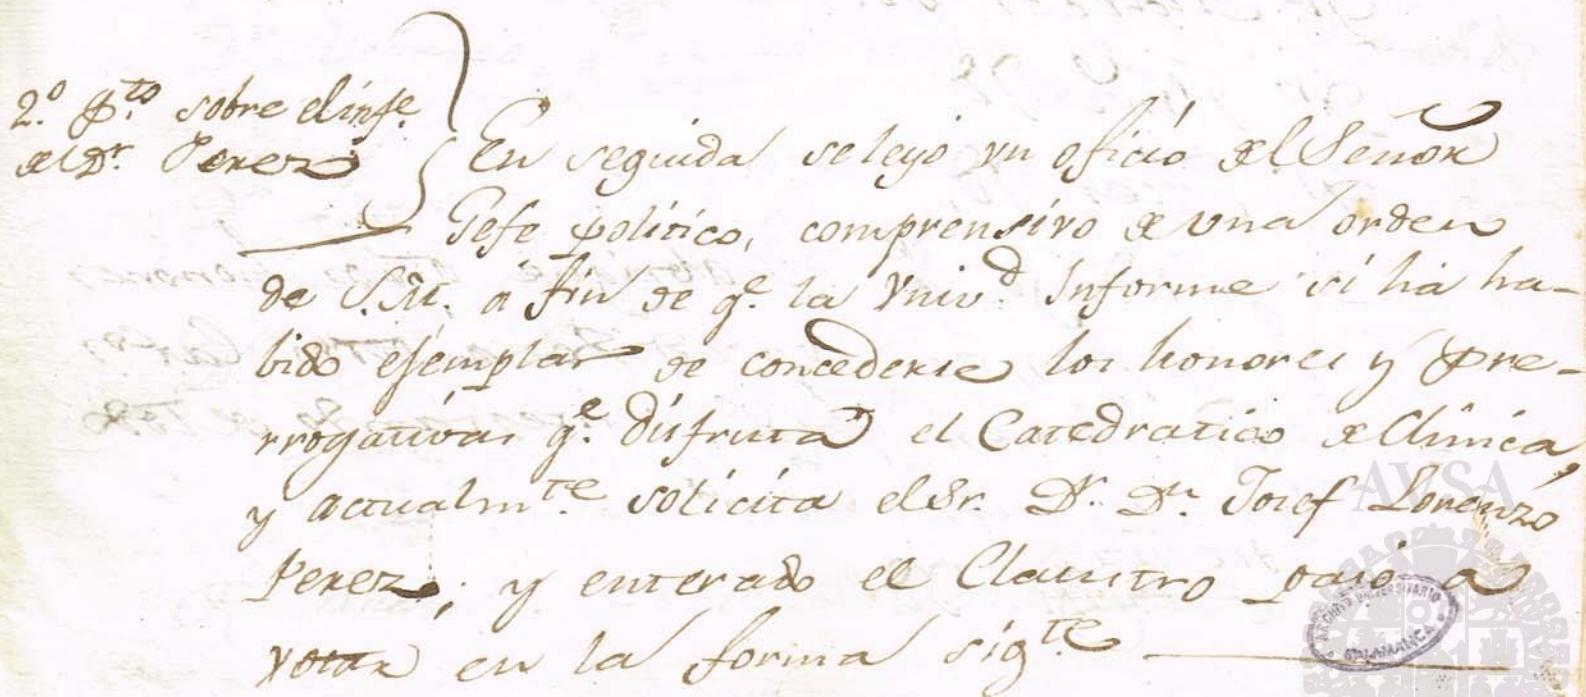 2.º p.to sobre el inf.e
del D.r Perez
En seguida se leyo un oficio del Señor
Gefe politico, comprensivo de una orden
de S.M. á fin de q.e la Univ.d Informe si há ha-
bido ejemplar de concederse los honores y pre-
rrogativas q.e disfruta el Catedratico de Clinica,
y actualm.te solicita el Sr. D.r D.n Josef Lorenzo
Perez; y enterado el Claustro pasó a
votar en la forma sig.te
AVSA
ARCHIVO UNIVERSITARIO
SALAMANCA